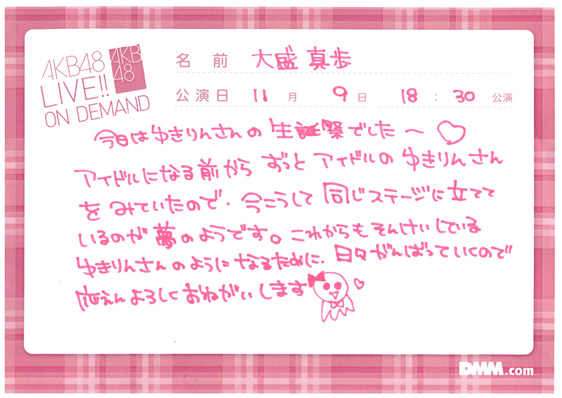 AKB48
LIVE!!
ON DEMAND
AKB
48
名前 大盛 真歩
公演日 11月 9日 18:30 公演
今日はゆきりんさんの生誕祭でした〜♡
アイドルになる前から ずっと アイドルの ゆきりんさん
を みていたので、今こうして 同じステージに立てて
いるのが 夢のようです。これからも そんけいしている
ゆきりんさんのように なるために、日々がんばっていくので
応えん よろしく おねがいします
DMM.com